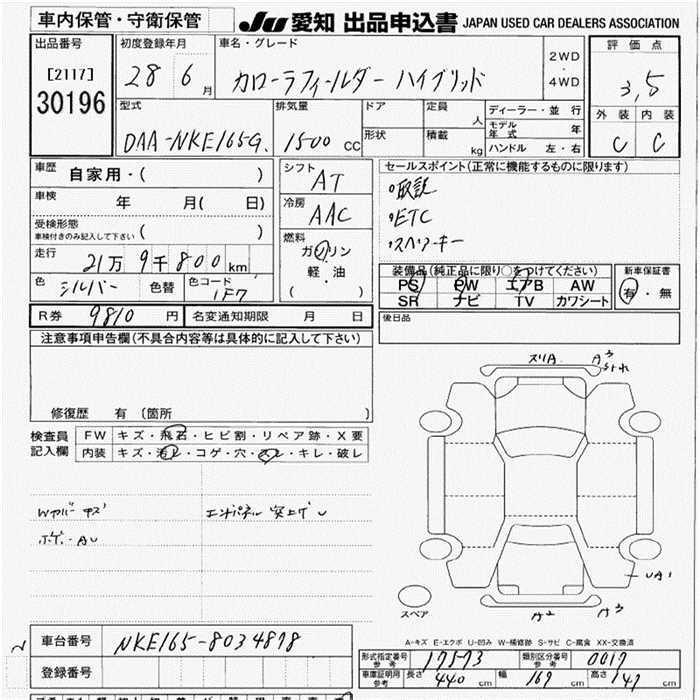 車内保管・守衛保管
JU 愛知 出品申込書 JAPAN USED CAR DEALERS ASSOCIATION
出品番号
[2117]
30196
初度登録年月
28 6月
車名・グレード
カローラフィールダー ハイブリッド
2WD
・
4WD
評価点
3,5
外装 内装
C C
型式
DAA-NKE165G.
排気量
1500 CC
ドア
形状
定員 人
積載 kg
ディーラー・並行
モデル年式 年
ハンドル 左・右
車歴 自家用・( )
車検 年 月( 日)
受検形態
車検付きのみ記入して下さい ( )
走行 21万9千800km
色 シルバー 色替 色コード 1F7
シフト AT
冷房 AAC
燃料
ガソリン
・
軽・油
( )
セールスポイント(正常に機能するものに限ります)
取説
ETC
スペアーキー
装備品(純正品に限り○をつけてください)
PS PW エアB AW
SR ナビ TV カワシート
新車保証書
有・無
後日品
R券 9810円 名変通知期限 月 日
注意事項申告欄(不具合内容等は具体的に記入して下さい)
修復歴 有〔箇所 〕
検査員記入欄
FW キズ・飛石・ヒビ割・リペア跡・X要
内装 キズ・汚レ・コゲ・穴・スレ・キレ・破レ
スリA. A3
UA1
A2 A3
スペア
A-キズ E-エクボ U-凹み W-補修跡 S-サビ C-腐食 XX-交換済
車台番号 NKE165-8034878
登録番号
形式指定番号 参考 17573 類別区分番号 参考 0017
車庫証明用 参考 長さ 440 cm 幅 169 cm 高さ 147 cm